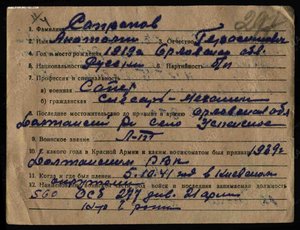 1. Фамилия Сапронов
2. Имя Анатолий 3. Отчество
4. Год и место рождения 1919 г. Орловская обл.
5. Национальность Русский 6. Партийность б/п
7. Профессия и специальность
а) военная Сапер
б) гражданская Слесарь-Механик
8. Последнее местожительство до призыва и армию Орловская обл
Долгански р. село Успенское
9. Воинское звание Л-нт
10. С какого года в Красной Армии и каким военкоматом был призван 1939 г.
РВК
11. Когда и где был пленен 5-10-41 под
12. войны и последняя занимаемая должность
560 ОСБ 297 див. 21 армии
роты